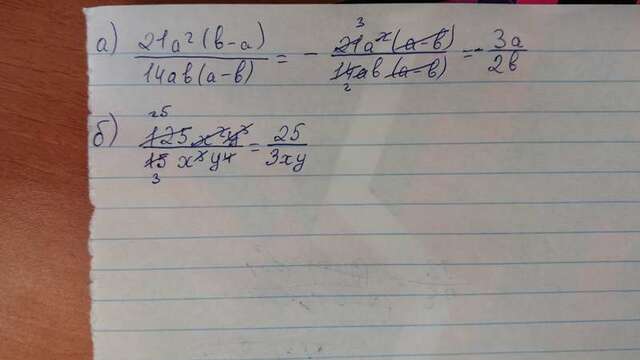 а) 21a²(b-a) / 14ab(a-b) = - 21a²(a-b) / 14ab(a-b) = - 3a / 2b
б) 125x²y³ / 15x³y⁴ = 25 / 3xy